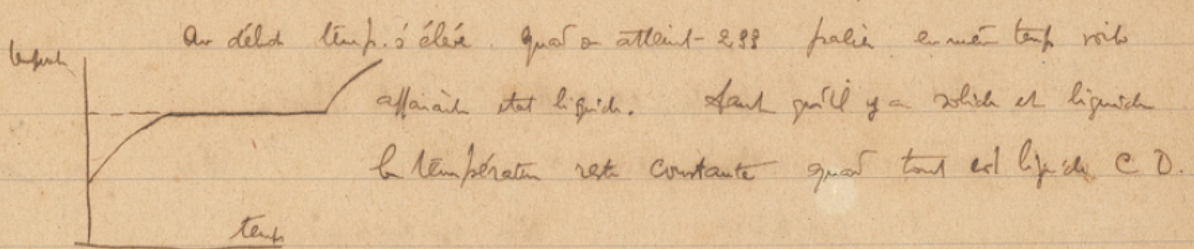 Au début temp. s'élève. quand on atteint 299 palier en même temps voit
température
apparaître état liquide. tant qu'il y a solide et liquide
la température reste constante quand tout est liquide C D.
temps